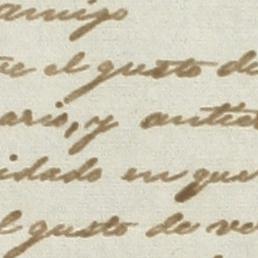 amigo
el gusto de
ario, y antic
idado en que
l gusto de ve